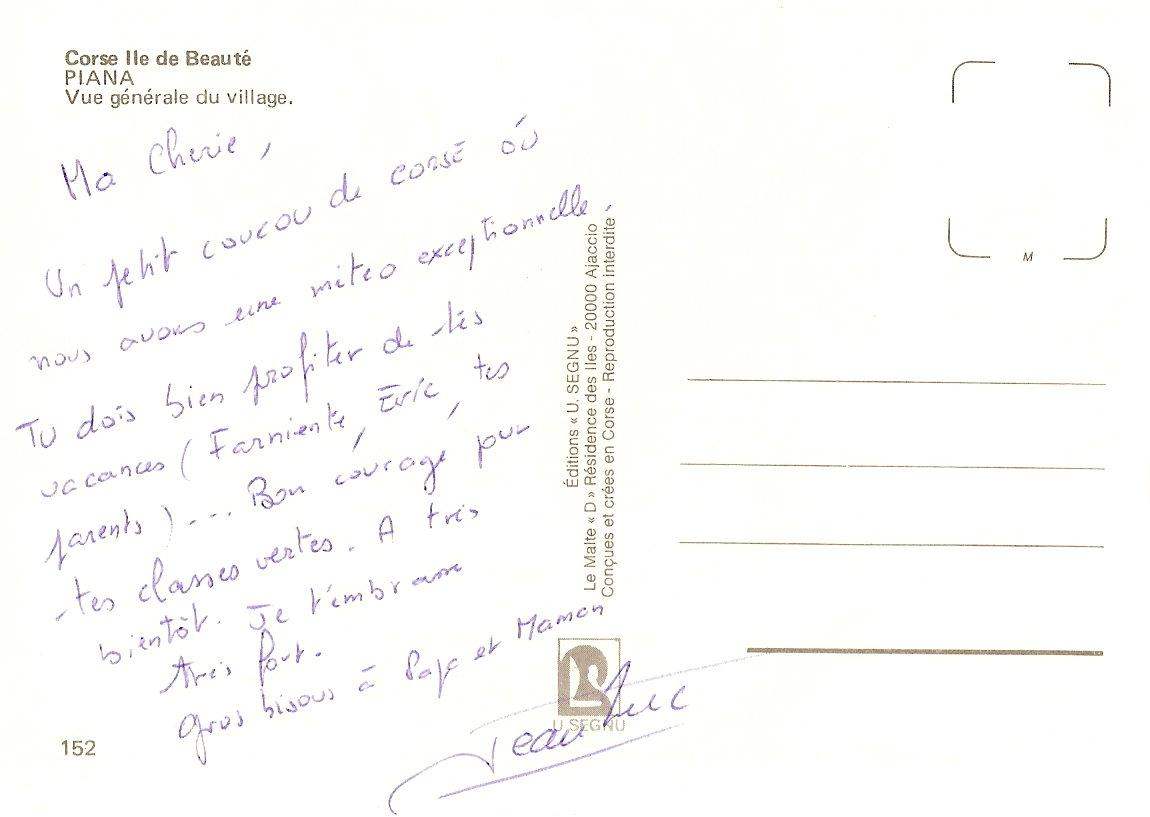 Corse Ile de Beauté
PIANA
Vue générale du village.
Ma Cherie,
Un petit coucou de corse où
nous avons une méteo exceptionnelle.
Tu dois bien profiter de tes
vacances (Farniente, Eric, tes
parents)... Bon courage pour
tes classes vertes. A très
bientôt. Je t'embrasse
très fort.
Gros bisous à Papa et Maman
Jean Luc
152
Éditions « U. SEGNU »
Le Malte « D » Résidence des Iles - 20000 Ajaccio
Conçues et crées en Corse - Reproduction interdite
U. SEGNU
M